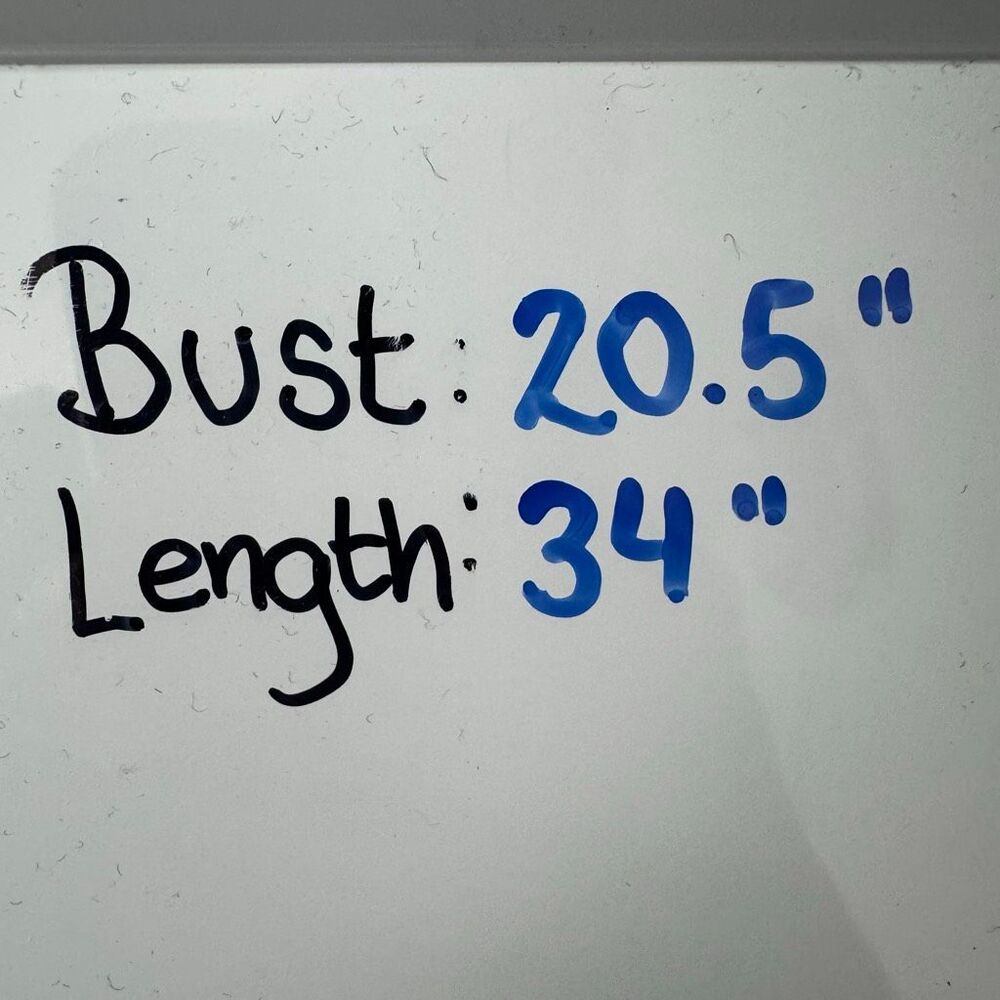 Bust: 20.5"
Length: 34"